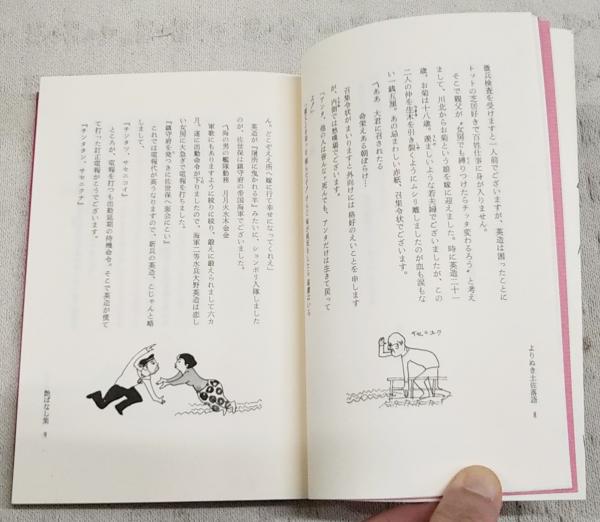 よりぬき土佐落語 8
徴兵検査を受けますと一人前でございますが、英造は困ったことに
トットの芝居好きで百姓仕事に身が入りません。
そこで親父が〝女房でも縛りつけたらチッタ変わるろう〟と考え
まして、川北からお菊という娘を嫁に迎えました。時に英造二十一
歳、お菊は十八歳。羨ましいような若夫婦でございましたが、この
二人の仲を生木を引き裂くようにムシリ離しましたのが血も涙もな
い一銭五厘、あの忌まわしい赤紙、召集令状でございます。
〝ああ 大君に召されたる
命栄えある朝ぼらけ…
召集令状がまいりますと外向けには格好のえいことを申します
が、内側では愁嘆場でございます。
『アンタ、他の人はみんな死んでも、アンタだけは生きて戻って
よ』
サセニユク
ん。どぞええ所へ嫁に行て幸せになってくれえ』
英造が『屠所に曳かれる羊』みたいに、ションボリ入隊しました
のが、佐世保は鎮守府の帝国海軍でございました。
〝海の男の艦隊勤務 月月火水木金金
軍歌にもありますように絞りに絞り、鍛えに鍛えられまして六カ
月、遂に出動命令が下りましたので、海軍二等水兵大野英造は恋し
い女房に大急ぎで電報を打ちました。
『鎮守府を発つきに佐世保へ面会にこい』
これでは電報代が高うなりますので、新兵の英造、こじゃんと略
しまして、
『チンタツ、サセニコイ』
ところが、電報を打つも出動延期の待機命令。そこで英造が慌て
て打った訂正電報がこうでございます。
『チンタタン、サセニクナ』
艶ばなし集 9